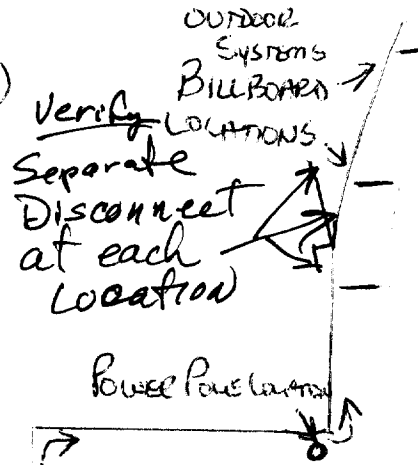 OUTDOOR
SYSTEMS
BILLBOARD
LOCATIONS
Verify
Separate
Disconnect
at each
Location
POWER POLE LOCATION